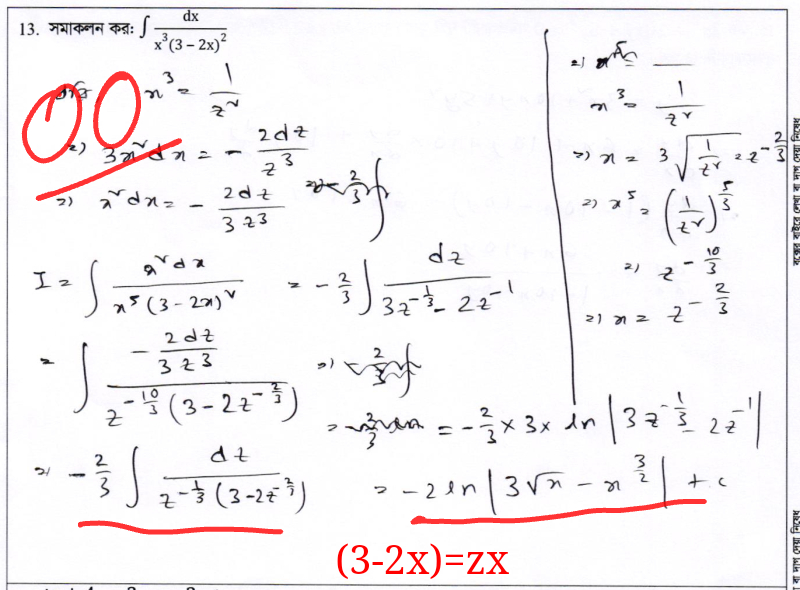 13. সমাকলন কর: ∫ dx / x³(3 – 2x)²
ধরি x³ = 1/z²
⇒) 3x²dx = - 2dz/z³
⇒) x²dx = - 2dz/3z³
I = ∫ x²dx / x⁵(3-2x)²
= ∫ (- 2dz/3z³) / z^(-10/3) (3-2z^(-2/3))
⇒) - 2/3 ∫ dz / z^(-1/3) (3-2z^(-2/3))
= - 2/3 ∫ dz / 3z^(-1/3) - 2z^(-1)
= - 2/3 × 3 × ln |3z^(-1/3) - 2z^(-1)|
= -2 ln |3√x - x^(3/2)| + c
x³ = 1/z²
⇒) x = 3√(1/z²) = z^(-2/3)
⇒) x⁵ = (1/z²)^(5/3)
⇒) z^(-10/3)
⇒) x = z^(-2/3)
(3-2x)=zx